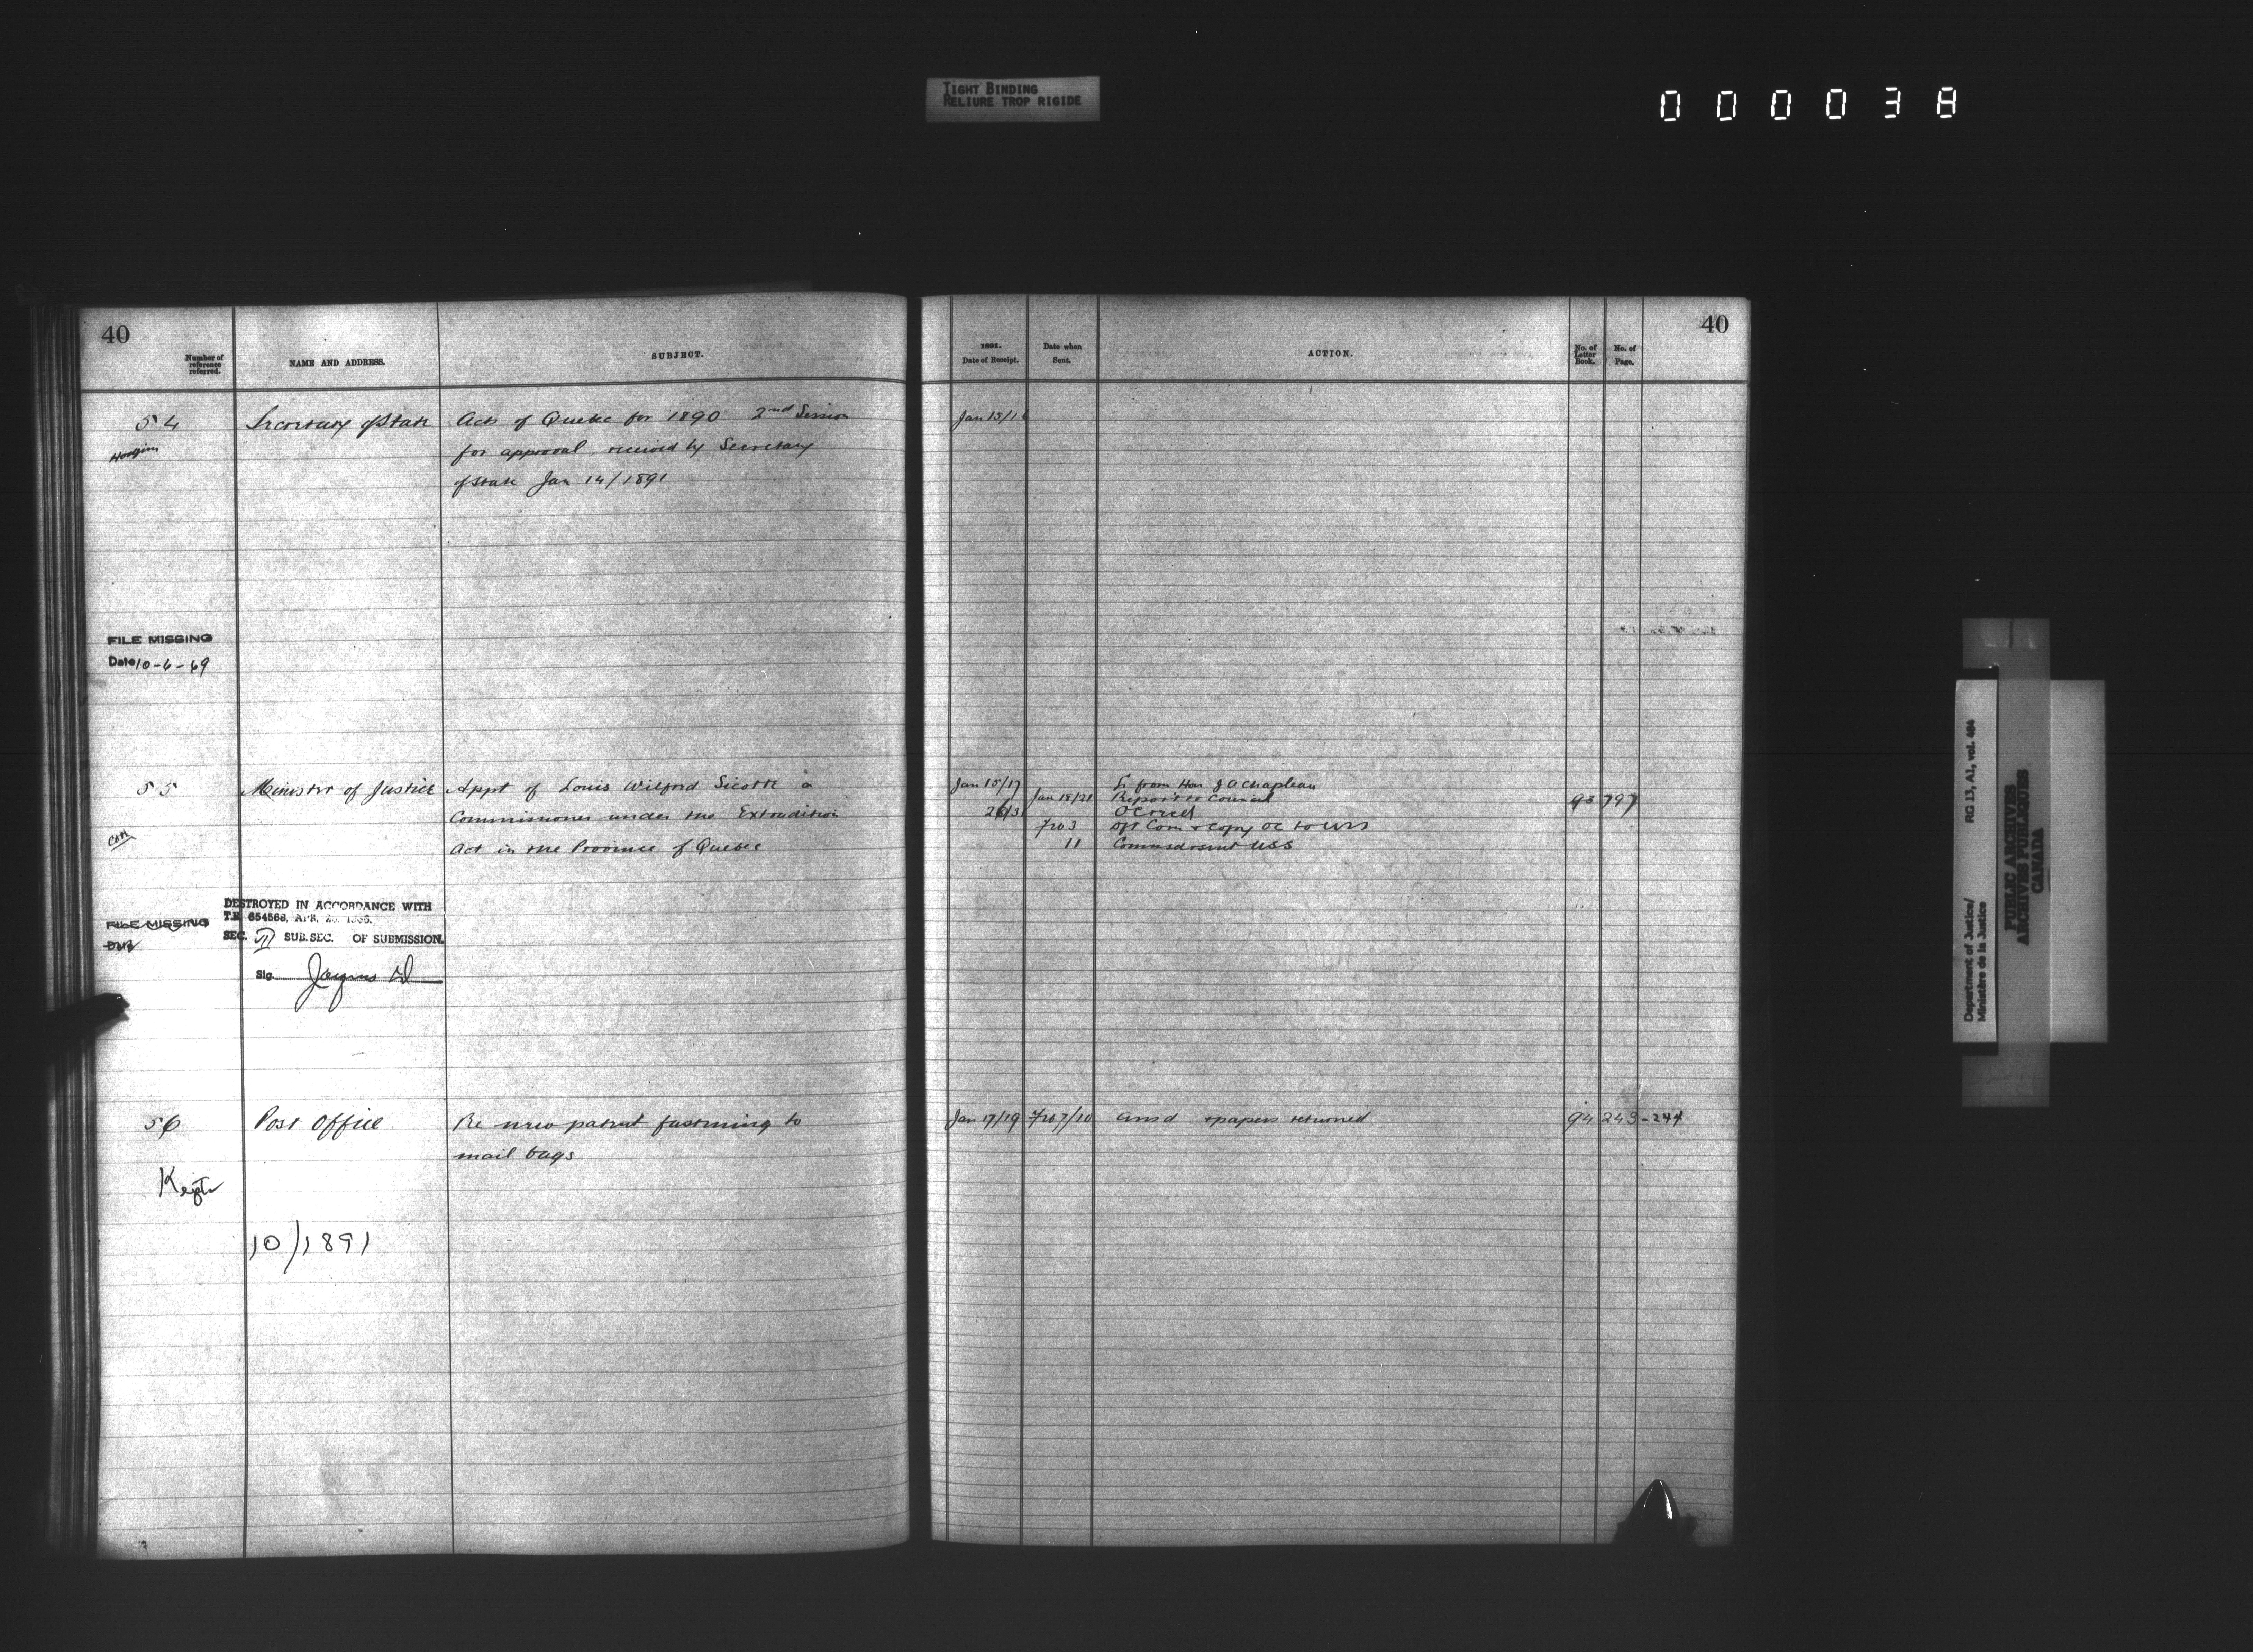 TIGHT BINDING
RELIURE TROP RIGIDE
000038
40
Number of reference referred.
NAME AND ADDRESS.
SUBJECT.
54
Secretary of State
Acts of Quebec for 1890 2nd Session
Hodgins
for approval, received by Secretary
of State Jan 14/1891
FILE MISSING
Date 10-6-69
55
Minister of Justice
Appt of Louis Wilford Sicotte a
Commissioner under the Extradition
Act in the Province of Quebec
DESTROYED IN ACCORDANCE WITH
T.B. 654566, APR. 1966.
FILE MISSING
Date
SEC. II SUB.SEC. OF SUBMISSION.
Sig.
56
Post Office
Re new patent fastening to
mail bags
Kept
10/1891
40
1891.
Date of Receipt.
Date when Sent.
ACTION.
No. of Letter Book.
No. of Page.
Jan 15/16
Jan 15/17
Lr from Hon J A Chapleau
Jan 18/21
Report to Council
93
797
26/31
OC recd
Feb 3
Dft Com & copy OC to USS
11
USS
Jan 17/19
Feb 7/10
Ansd & papers returned
94
243-244
Department of Justice/
Ministère de la Justice
RG 13, A1, vol. 484
PUBLIC ARCHIVES
ARCHIVES PUBLIQUES
CANADA